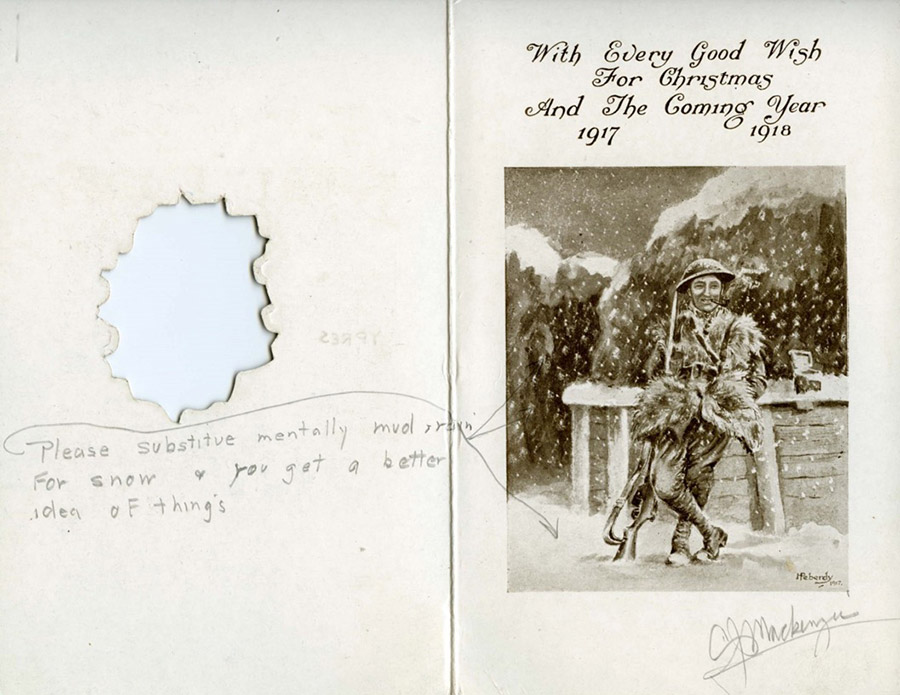 YPRES
Please substitue mentally mud, rain
For snow & you get a better
idea of things
With Every Good Wish
For Christmas
And The Coming Year
1917 1918
1917.
CJ Mackenzie